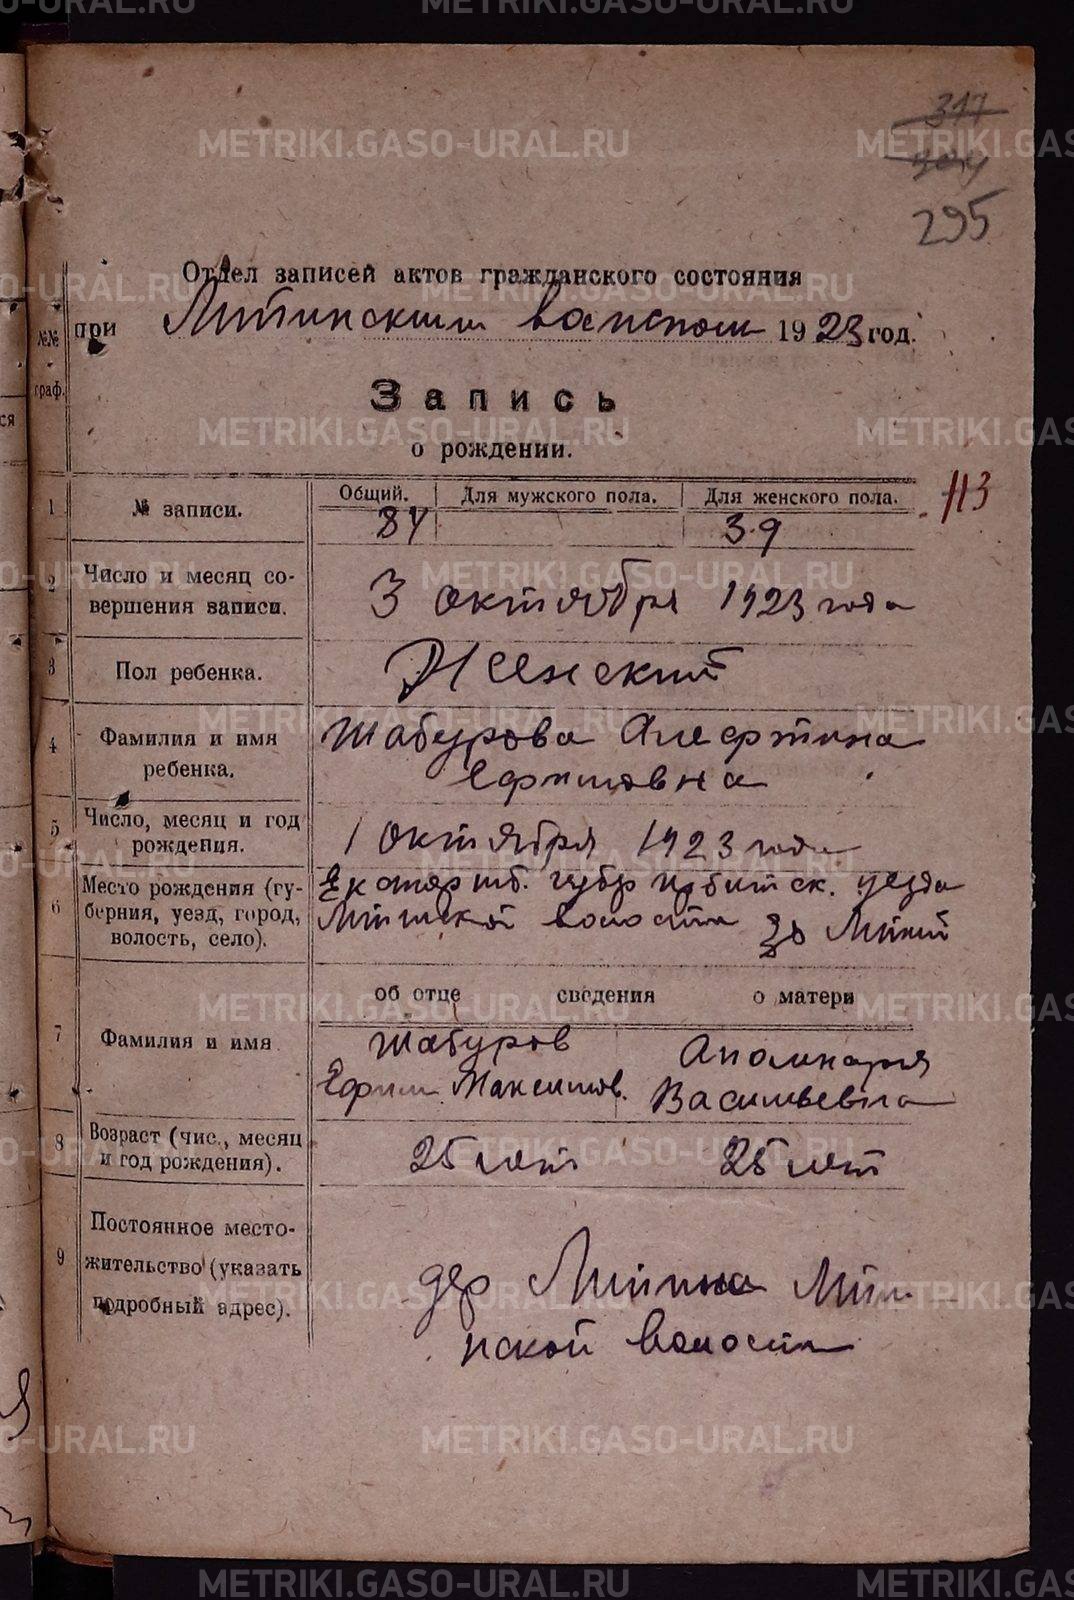 317
304
295
Отдел записей актов гражданского состояния
при Липинским волиспом 1923 год.
№№ граф.
Запись
о рождении.
Общий. Для мужского пола. Для женского пола.
1 № записи. 84 39
113
2 Число и месяц со-
вершения записи.
3 октября 1923 года
3 Пол ребенка. Женский
4 Фамилия и имя
ребенка.
Шабурова Алефтина
Ефимовна
5 Число, месяц и год
рождения.
1 октября 1923 года
6 Место рождения (гу-
берния, уезд, город,
волость, село).
Екатеринб. губер Ирбитск. уезда
волости
об отце сведения о матери
7 Фамилия и имя
Шабуров
Ефим Максимов.
Апалинария
Васильевна
8 Возраст (чис., месяц
и год рождения).
25 лет 25 лет
9 Постоянное место-
жительство (указать
подробный адрес).
дер
нской волости
METRIKI.GASO-URAL.RU